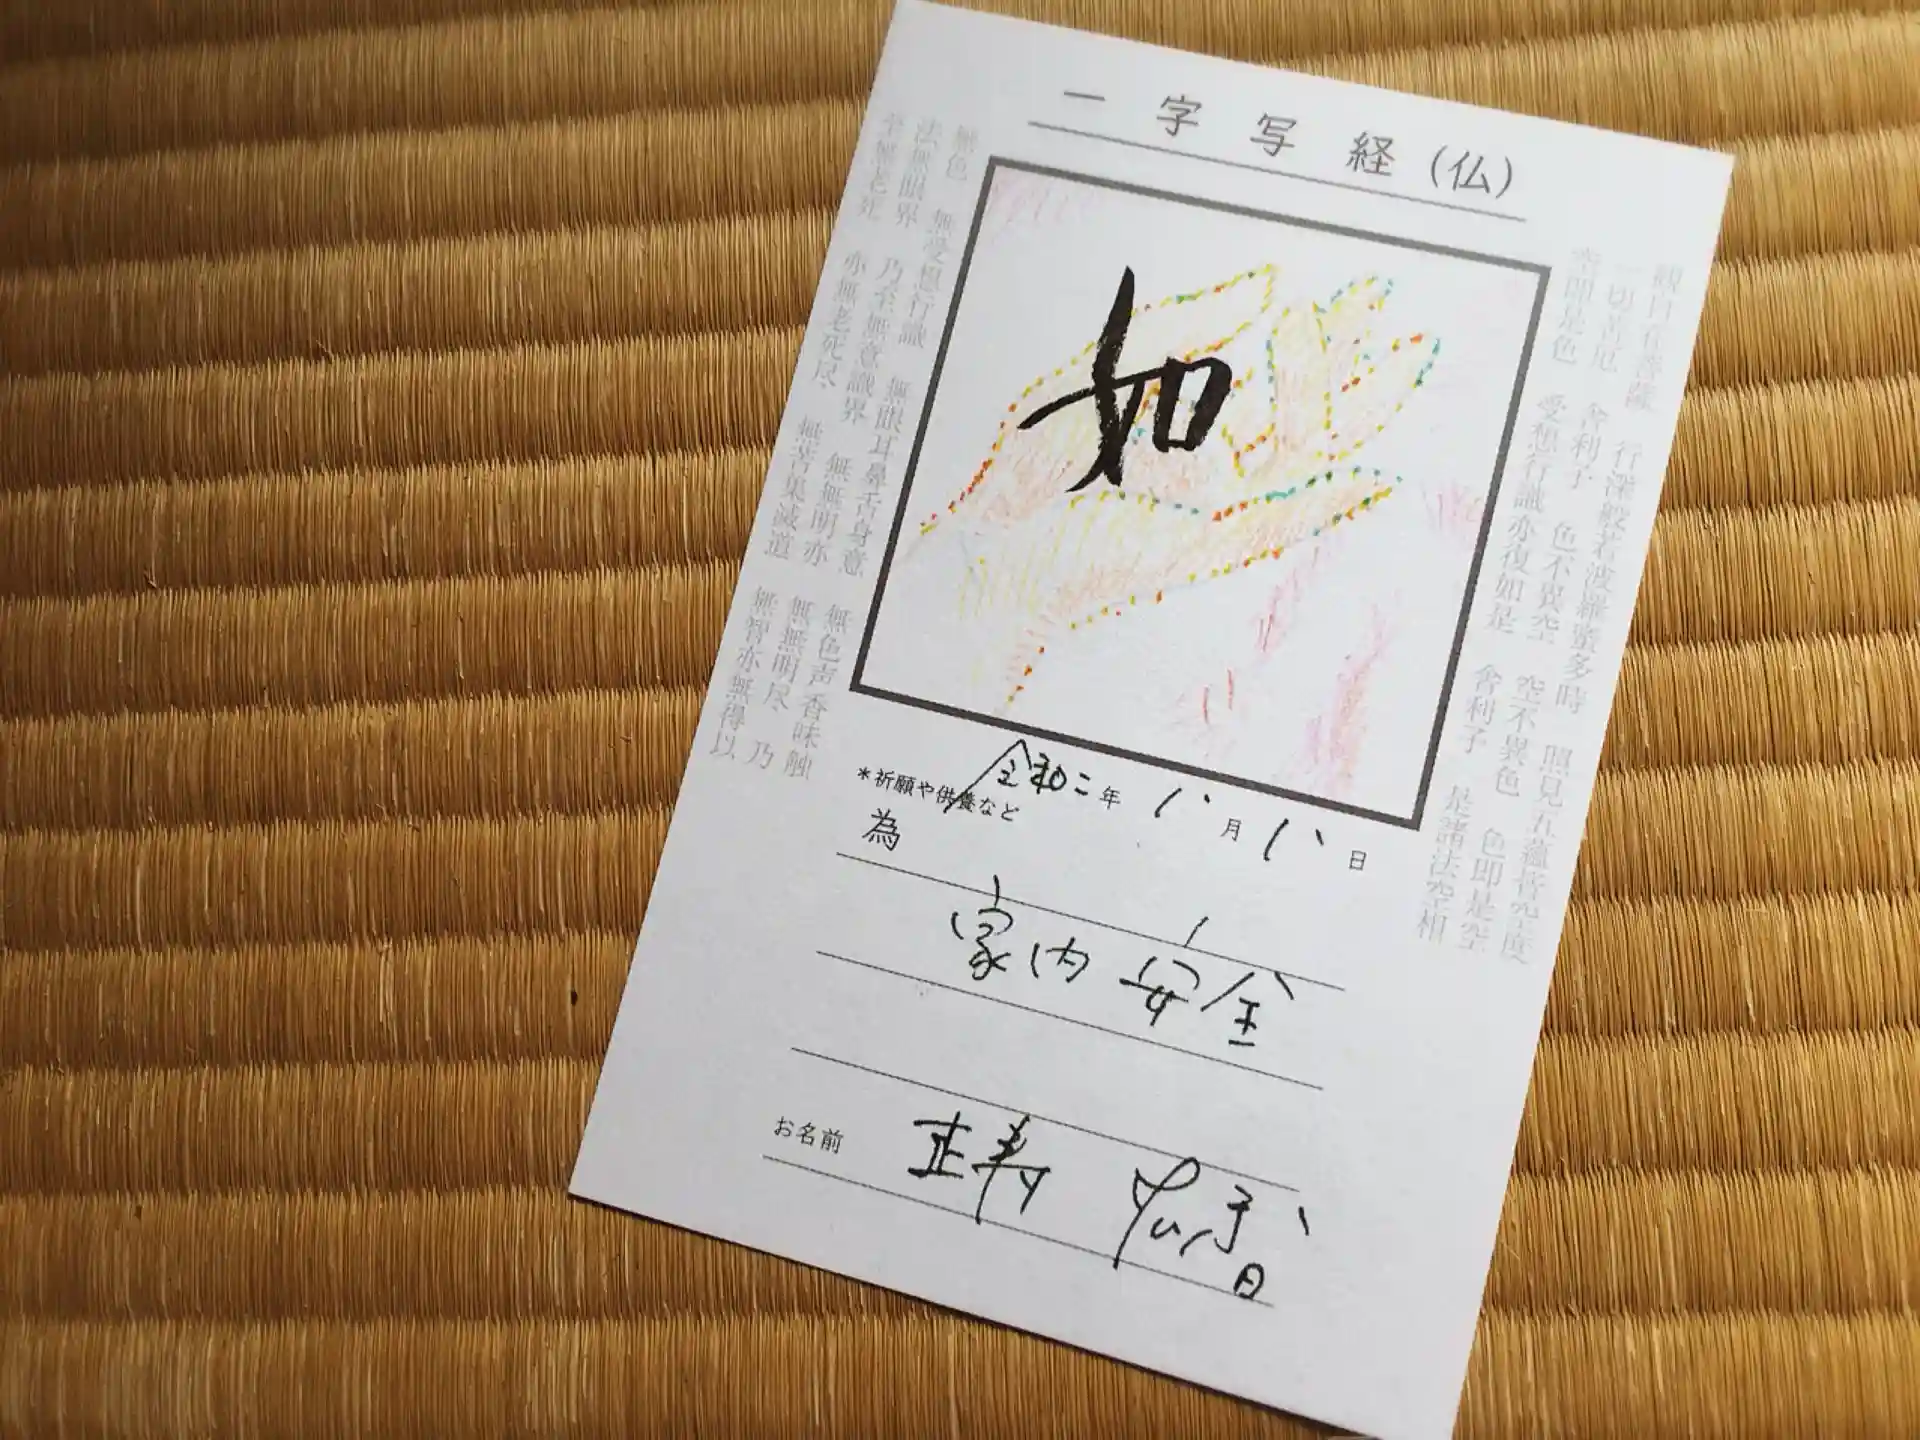 一字写経(仏)
観自在菩薩 行深般若波羅蜜多時 照見五蘊皆空度
一切苦厄 舎利子 色不異空 空不異色 色即是空
空即是色 受想行識亦復如是 舎利子 是諸法空相
如
無色 無受想行識 無眼耳鼻舌身意 無色声香味触
法無眼界 乃至無意識界 無無明亦 無無明尽 乃
至無老死 亦無老死尽 無苦集滅道 無智亦無得以
令和二年 八月 八日
*祈願や供養など
為
家内安全
お名前 正寿